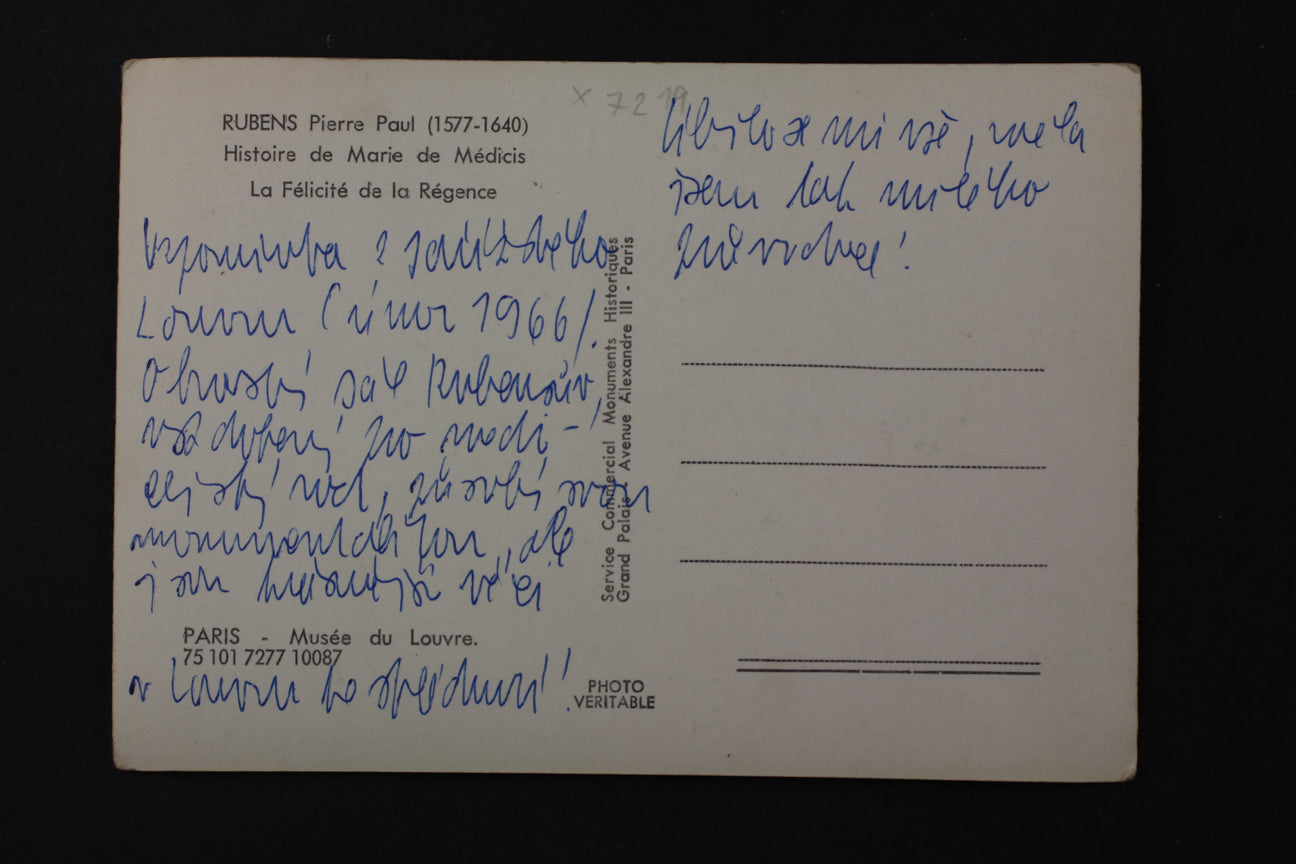 x 72 19
RUBENS Pierre Paul (1577-1640)
Histoire de Marie de Médicis
La Félicité de la Régence
Vzpomínka z pařížského
Louvru (únor 1966).
Obrovský sál Rubensův,
vyzdobený pro
rod, působí svou
monumentalitou, ale
jsou krásnější věci
v Louvru ke shlédnutí!
PARIS - Musée du Louvre.
75 101 7277 10087
PHOTO
VERITABLE
Service Commercial Monuments Historiques
Grand Palais - Avenue Alexandre III - Paris
Líbilo se mi vše, měla
jsem tak milého
průvodce!